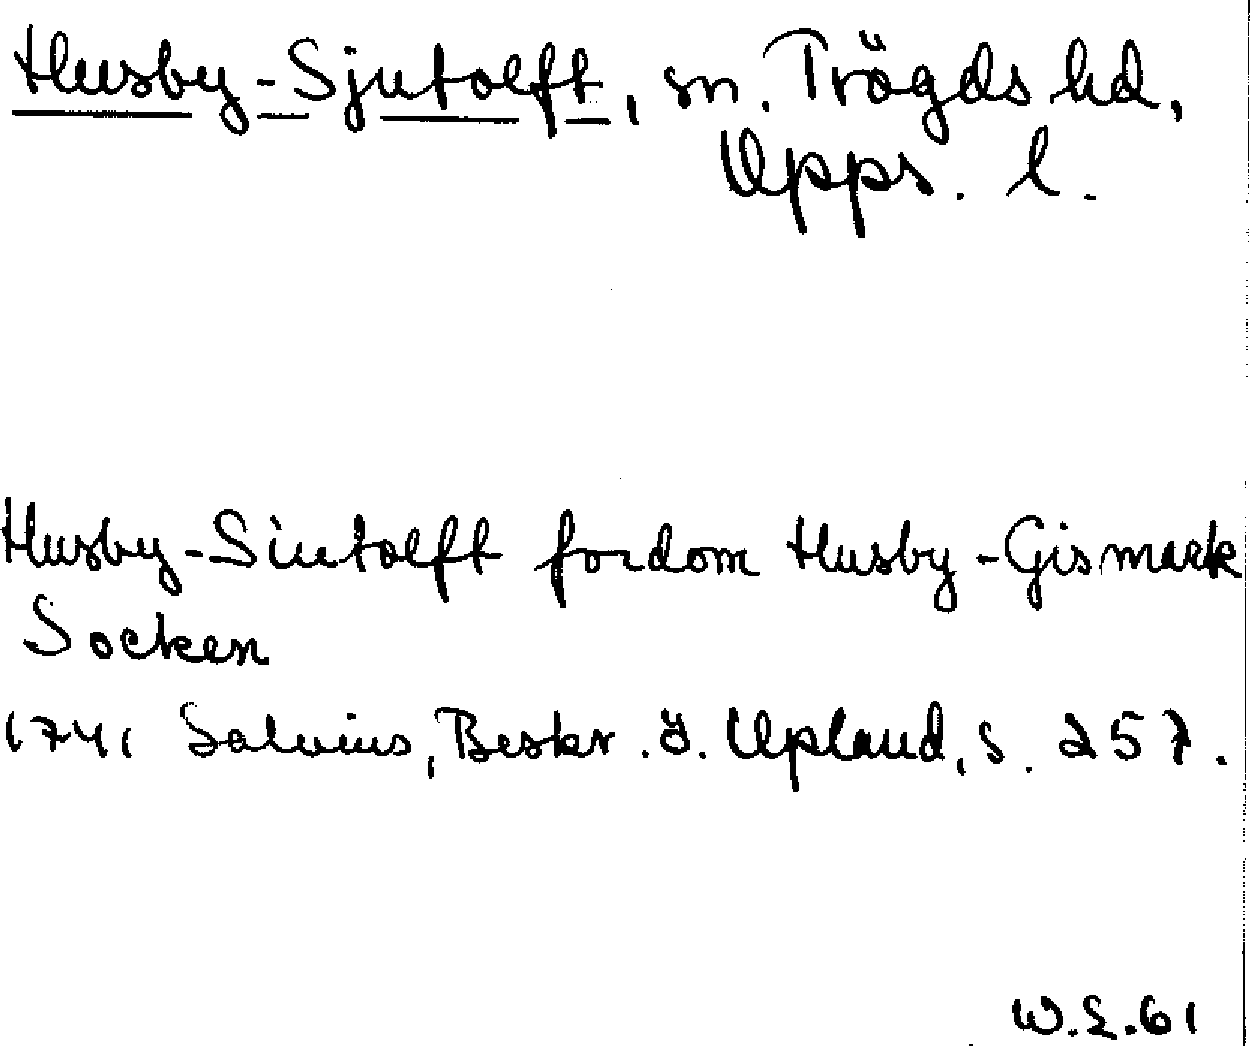 Husby-Sjutolft, sn. Trögds hd,
Upps. l.
Husby-Siutolft fordom Husby-Gismark
Socken
1741 Salvius, Beskr. ö. Upland, s. 257.
W.L.61